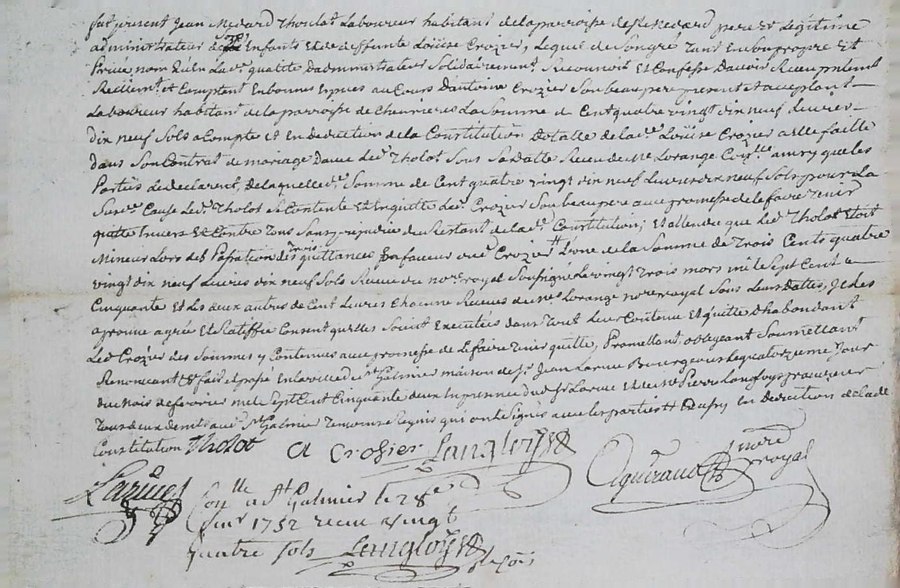 fut present Jean Medard Tholot Laboureur habitant de la parroisse de St Medard pere et Legitime
administrateur de ses Enfants et de deffunte Loüise Crozier, Lequel de Son gré tant en Son propre Et
Privé nom qu'en La de qualité d'administrateur Solidairement Reconnoit Et Confesse D'avoir Receu presentement
Reellement et Comptant En bonnes Especes au Cours D'antoine Crozier Son beaupere present et acceptant
Laboureur habitant de la parroisse de Chevrieres La Somme de Cent quatre vingt dix neuf Livres
dix neuf Sols a Compte et En deduction de la Constitution Dotalle de lad. Loüise Crozier a Elle faitte
dans Son Contrat de mariage Davec led. Tholot Sous Sa Datte Receu de Me Lorange ainsy que les
Parties Le declarent, de laquelle de. Somme de Cent quatre vingt dix neuf Livres dix neuf Sols pour La
Susd. Cause Led. Tholot Se Contente Et En quitte Led. Crozier Son beaupere avec promesse de le faire tenir
quitte Envers Et Contre Tous Sans prejudice du Restant de la de. Constitution, Et attendu que Led. Tholot Etoit
Mineur Lors des trois quittances En faveur dud. Crozier Lune de la Somme de Trois Cents quatre
vingt dix neuf Livres dix neuf Sols Receue du nore. royal Soussigné Le vingt Trois mars mil Sept Cent
Cinquante Et Les deux autres de Cent Livres Chacune Receues de Me Lorange nore royal Sous Leurs dattes, Icelles
aprouve agrée Et Ratiffie Consent qu'elles Soient Executées dans Tout Leur Contenu Et quitte D'habondant
Led. Crozier des Sommes y Contenues avec promesse de Le faire Tenir quitte, Promettant obligeant Soumettant
Renonçant &c fait Et passé En la ville de St Galmier maison de Sr. Jean Larue Bourgeois Le quatorzieme Jour
du Mois de fevrier mil Sept Cent Cinquante deux En presence dud. Sr Larue et de Me Pierre Langloys
Tous deux dem. aud. St Galmier Temoins Requis qui ont Signé avec les parties En deduction de lade
Constitution Tholot A Crosier Langloys
Larue Aguiraud nore royal
Con.lle a St Galmier le 28e
1752 receu vingt
quatre sols Langloys